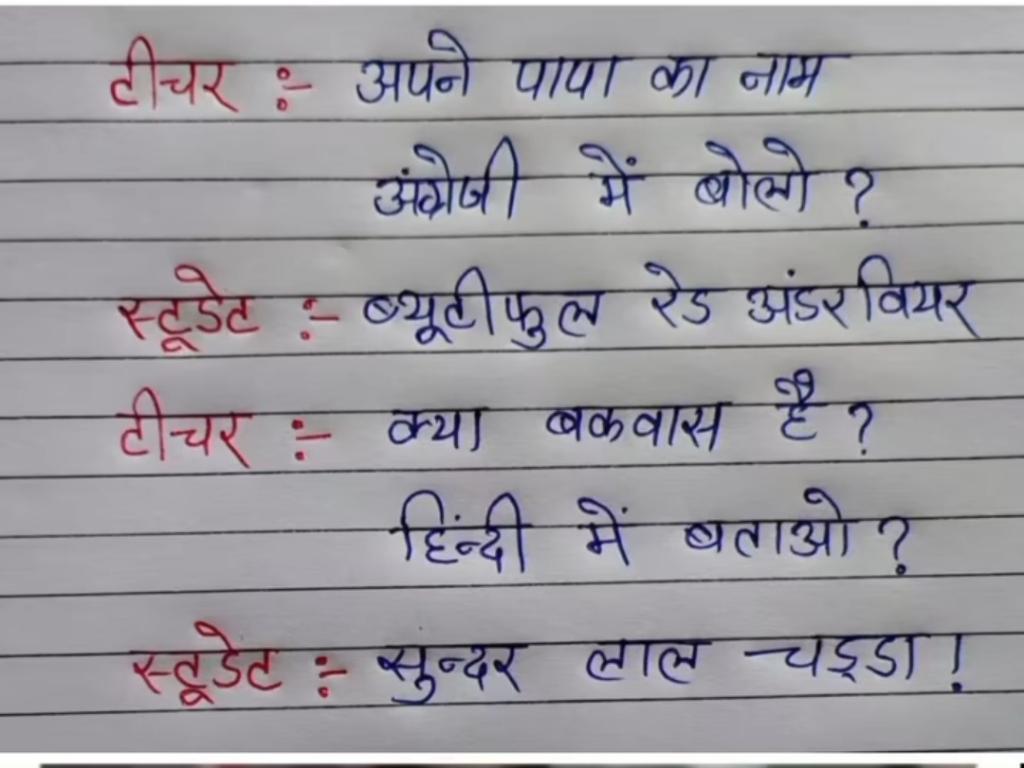 टीचर :- अपने पापा का नाम
अंग्रेजी में बोलो ?
स्टूडेट :- ब्यूटीफुल रेड अंडरवियर
टीचर :- क्या बकवास है ?
हिंन्दी में बताओ ?
स्टूडेट :- सुन्दर लाल चड्डा !